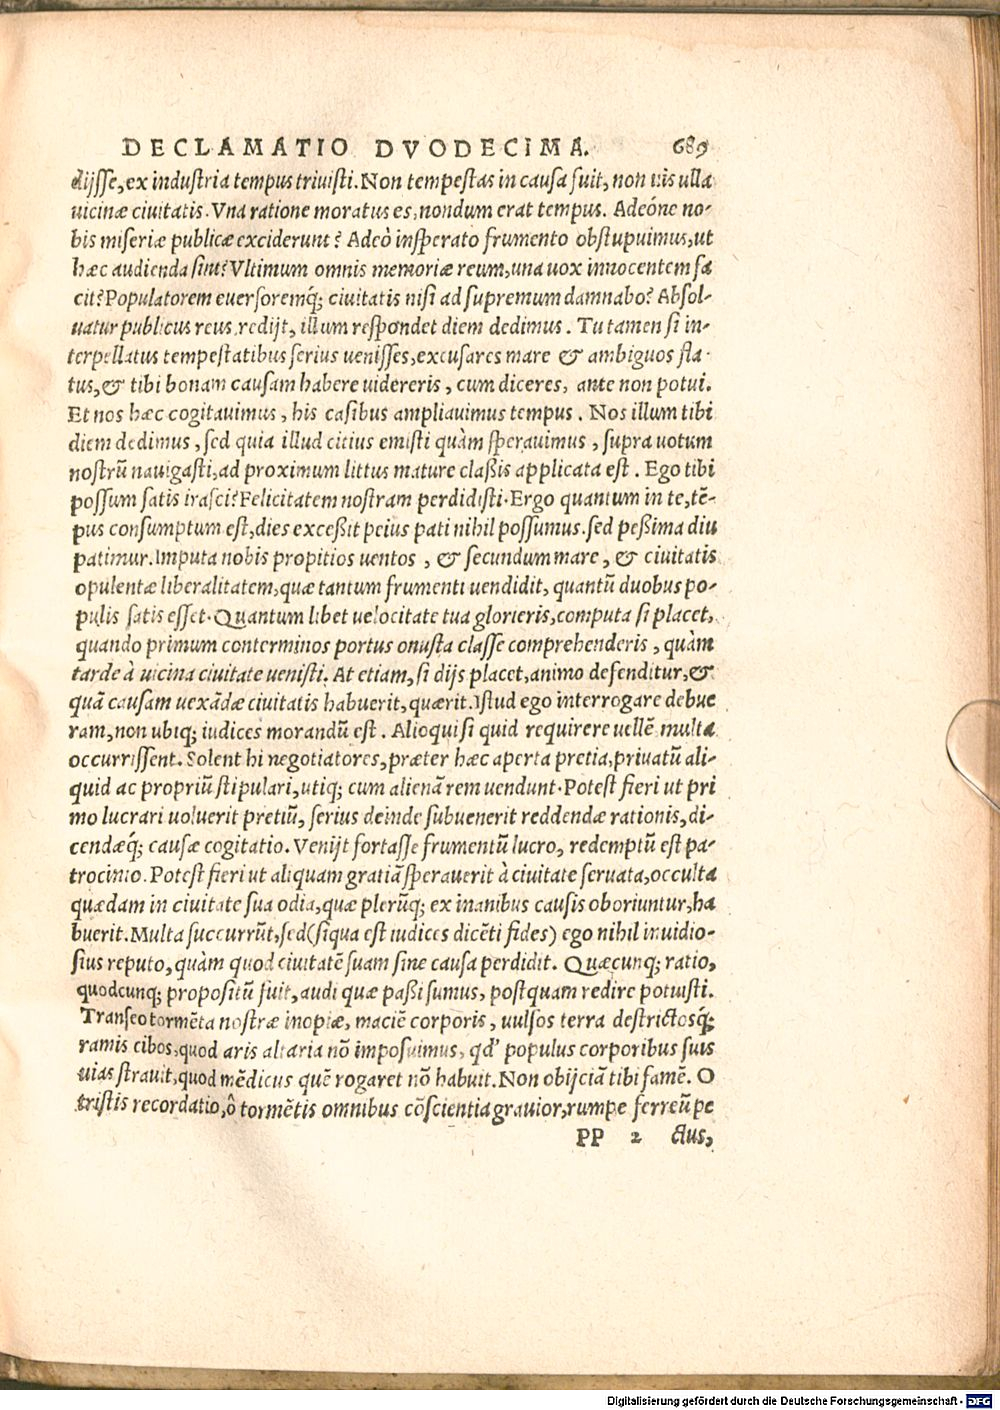 DECLAMATIO DVODECIMA. 689
dijsse, ex industria tempus triuisti. Non tempestas in causa fuit, non uis ulla
uicinæ ciuitatis. Vna ratione moratus es, nondum erat tempus. Adeóne no-
bis miseriæ publicæ exciderunt? Adeò insperato frumento obstupuimus, ut
hæc audienda sint? Vltimum omnis memoriæ reum, una uox innocentem fa
cit? Populatorem euersoremq́; ciuitatis nisi ad supremum damnabo? Absol-
uatur publicus reus, redijt, illum respondet diem dedimus. Tu tamen si in-
terpellatus tempestatibus serius uenisses, excusares mare & ambiguos fla-
tus, & tibi bonam causam habere uidereris, cum diceres, ante non potui.
Et nos hæc cogitauimus, his casibus ampliauimus tempus. Nos illum tibi
diem dedimus, sed quia illud citius emisti quàm sperauimus, supra uotum
nostrū nauigasti, ad proximum littus mature claßis applicata est. Ego tibi
possum satis irasci? Felicitatem nostram perdidisti. Ergo quantum in te, tē-
pus consumptum est, dies exceßit peius pati nihil possumus. sed peßima diu
patimur. Imputa nobis propitios uentos, & secundum mare, & ciuitatis
opulentæ liberalitatem, quæ tantum frumenti uendidit, quantū duobus po-
pulis satis esset. Quantum libet uelocitate tua glorieris, computa si placet,
quando primum conterminos portus onusta classe comprehenderis, quàm
tarde à uicina ciuitate uenisti. At etiam, si dijs placet, animo defenditur, &
quā causam uexādæ ciuitatis habuerit, quærit. Istud ego interrogare debue
ram, non ubiq; iudices morandū est. Alioqui si quid requirere uellē multa
occurrissent. Solent hi negotiatores, præter hæc aperta pretia, priuatū ali-
quid ac propriū stipulari, utiq; cum alienā rem uendunt. Potest fieri ut pri
mo lucrari uoluerit pretiū, serius deinde subuenerit reddendæ rationis, di-
cendæq́; causæ cogitatio. Venijt fortasse frumentū lucro, redemptū est pa-
trocinio. Potest fieri ut aliquam gratiā sperauerit à ciuitate seruata, occulta
quædam in ciuitate sua odia, quæ plerūq; ex inanibus causis oboriuntur, ha
buerit. Multa succurrūt, sed (siqua est iudices dicēti fides) ego nihil inuidio-
sius reputo, quàm quod ciuitatē suam sine causa perdidit. Quæcunq; ratio,
quodcunq; propositū fuit, audi quæ paßi sumus, postquam redire potuisti.
Transeo tormēta nostræ inopiæ, maciē corporis, uulsos terra destrictosq́;
ramis cibos, quod aris altaria nō imposuimus, qd' populus corporibus suis
uias strauit, quod mēdicus quē rogaret nō habuit. Non obijciā tibi famē. O
tristis recordatio, ô tormētis omnibus cōscientia grauior, rumpe ferreū pe
PP 2 ctus,
Digitalisierung gefördert durch die Deutsche Forschungsgemeinschaft - DFG